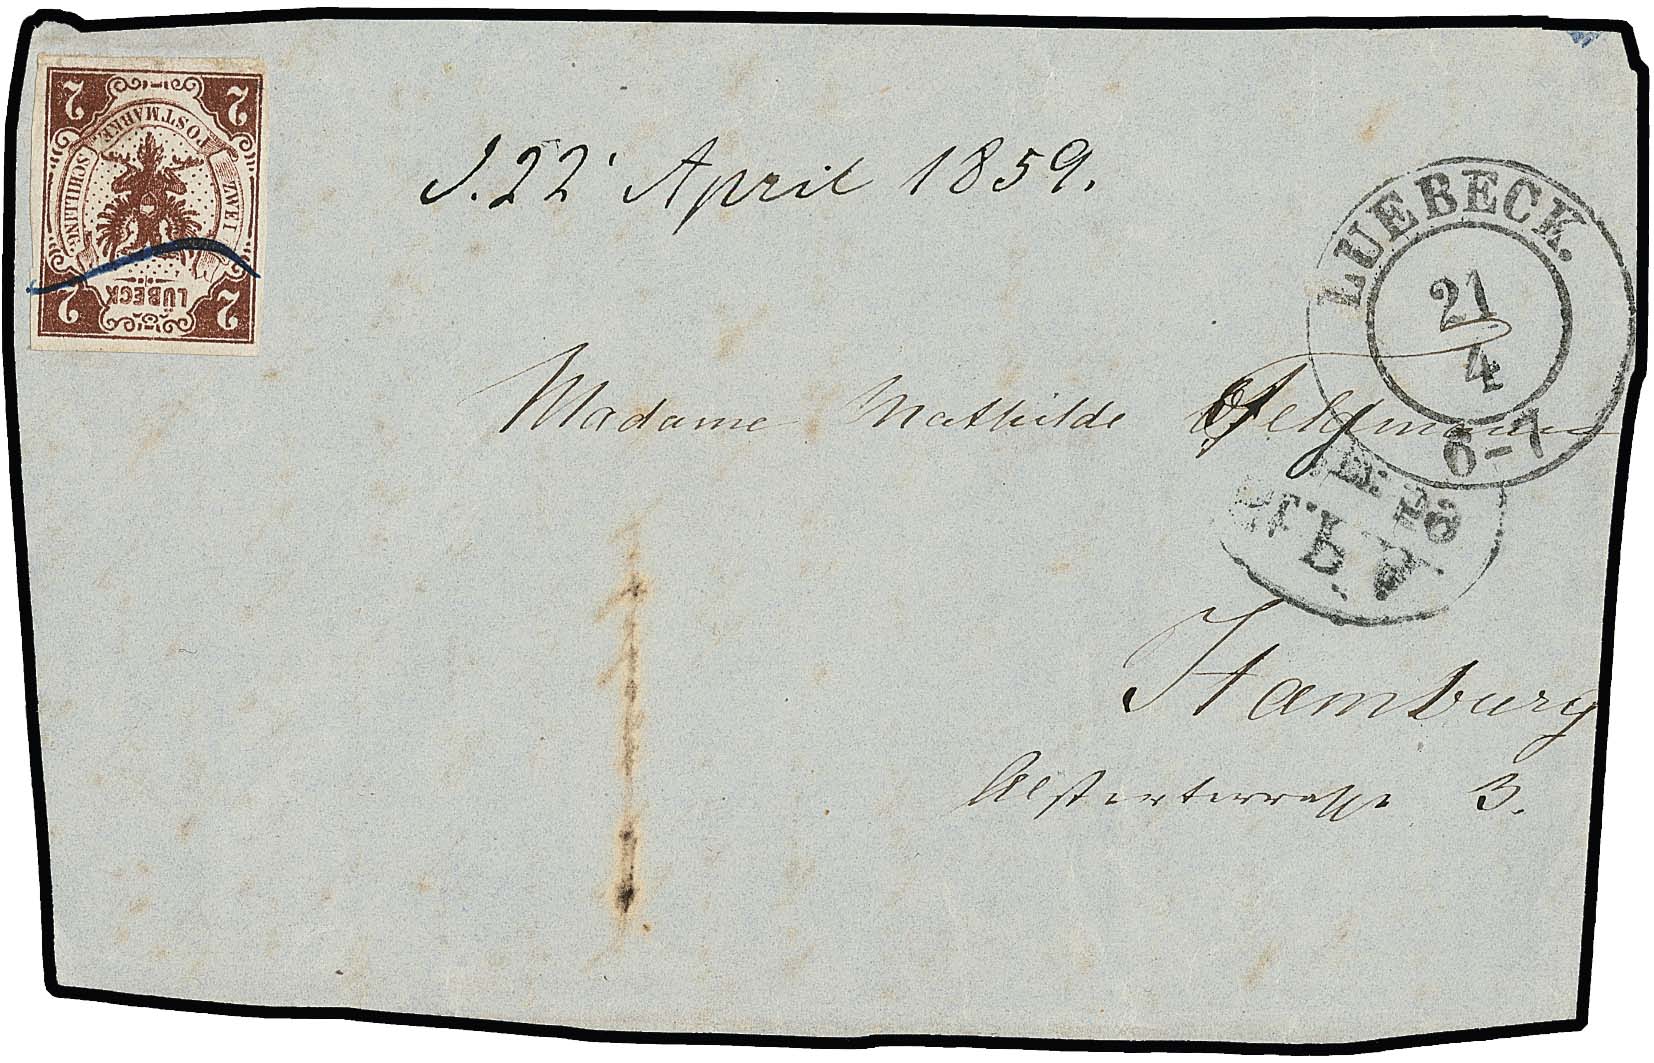 2 2
POSTMARKE.
ZWEI SCHILLING.
LÜBECK
2 2
22 April 1859.
LUEBECK.
21
4
6-7
Madame Mathilde Feldmann
Hamburg
Alsterterrasse 3.